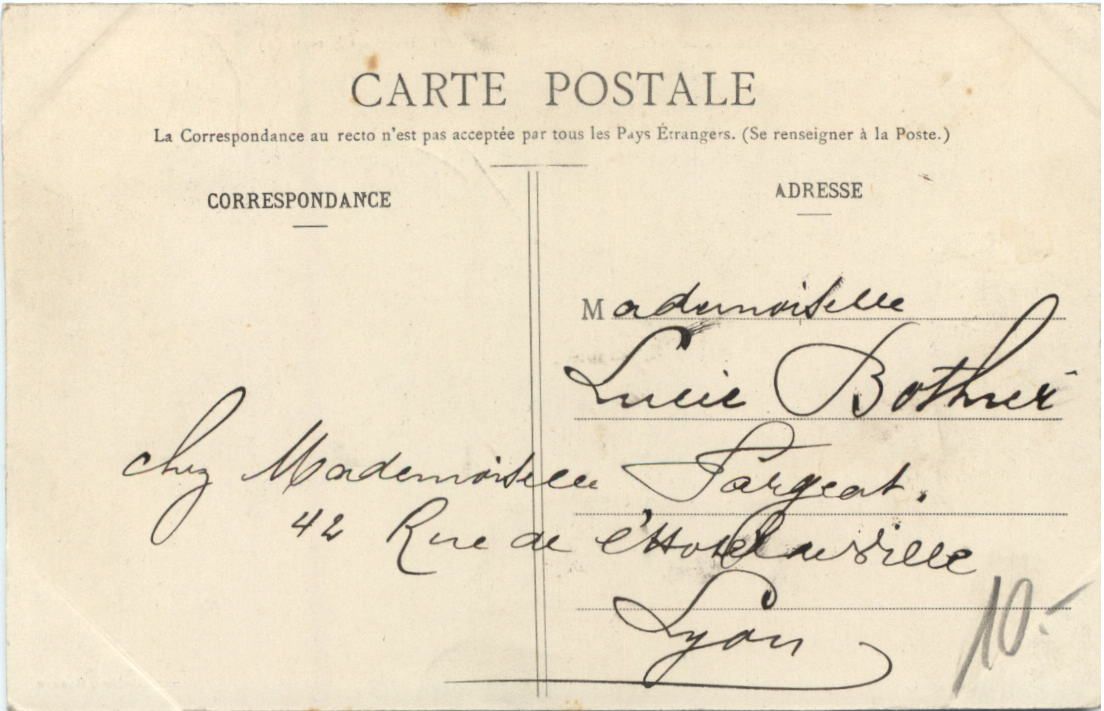 CARTE POSTALE
La Correspondance au recto n'est pas acceptée par tous les Pays Étrangers. (Se renseigner à la Poste.)
CORRESPONDANCE
ADRESSE
Mademoiselle
Lucie
chez Mademoiselle
42 Rue de l'Hotel de Ville
Lyon
10.-